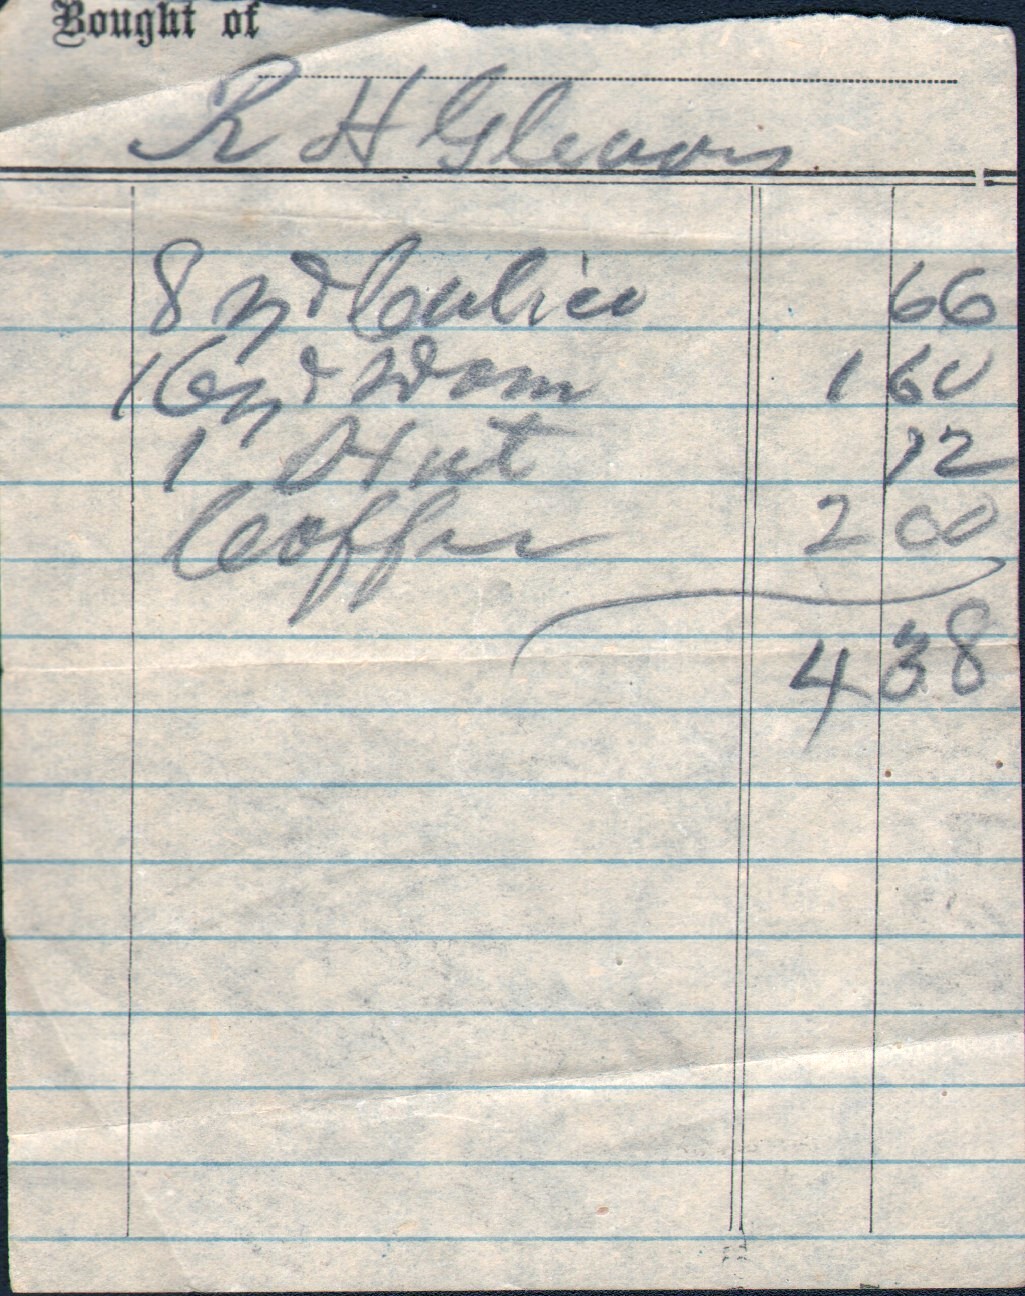 Bought of
R H Gleaves
8 yd Calico 66
16 yd Dom 1 60
1 Hat 12
Coffee 2 00
4 38